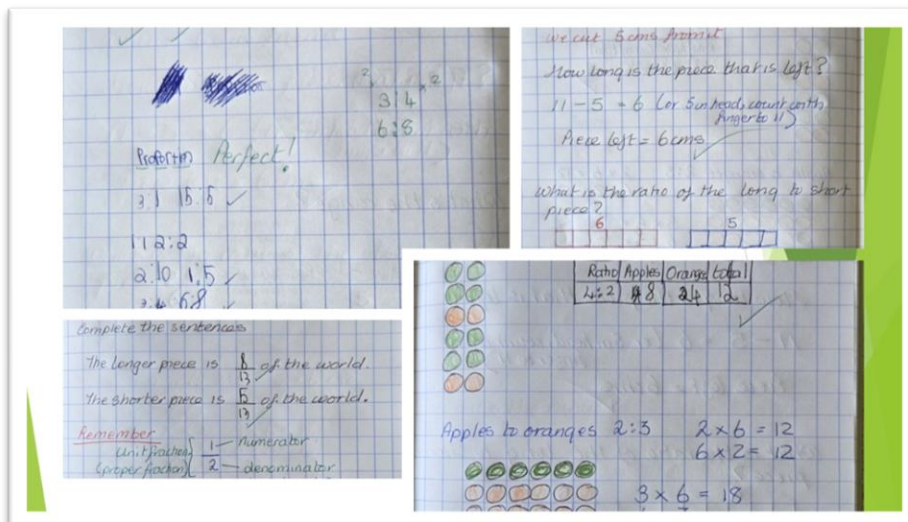 2 2
3:4
6:8
Proportion Perfect!
3:1 15:5
1:1 2:2
2:10 1:5
3:4 6:8
we cut 5cms from it
How long is the piece that is left?
11 - 5 = 6 (or 5 in head, count with
finger to 11)
Piece left = 6cms
What is the ratio of the long to short
piece?
6 5
Complete the sentences
The longer piece is 8/13 of the world.
The shorter piece is 5/13 of the world.
Remember
Unit fraction 1 numerator
(proper fraction) 2 denominator
Ratio Apples Orange total
4:2 8 4 12
Apples to oranges 2:3 2 x 6 = 12
6 x 2 = 12
3 x 6 = 18